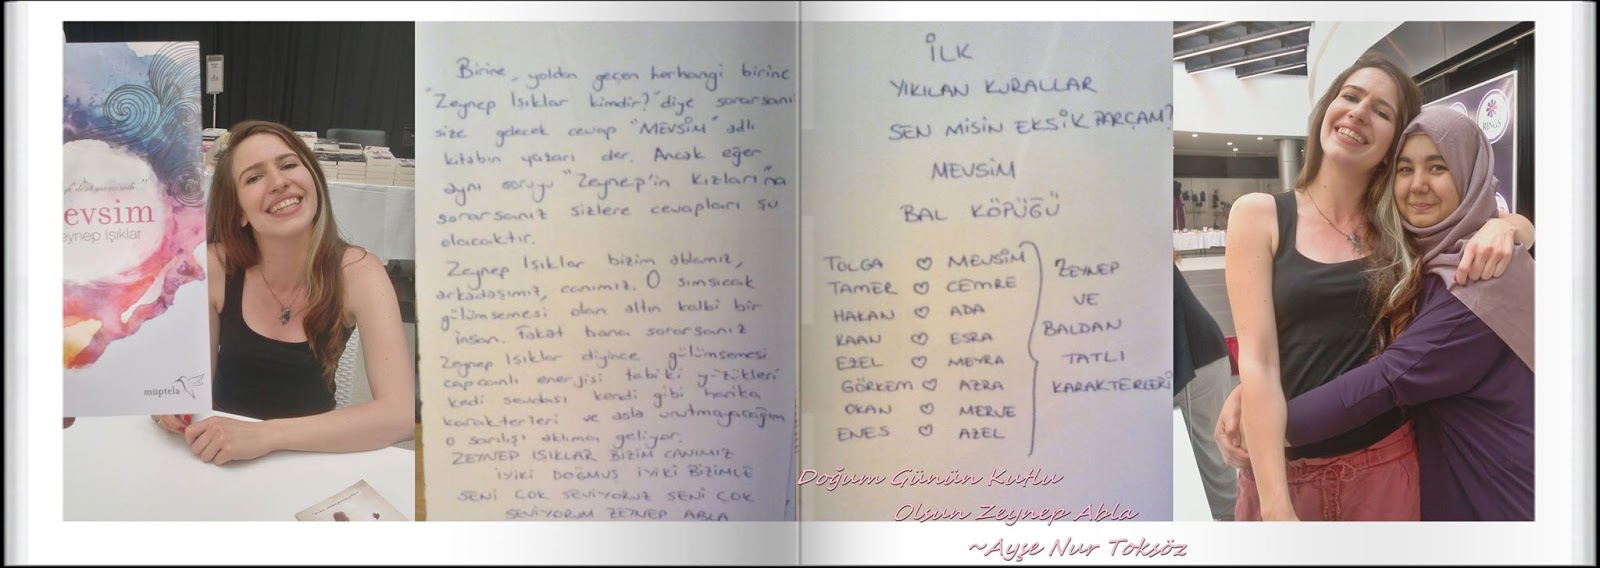 evsim
eynep Işıklar
müptela
Birine, yoldan geçen herhangi birine
"Zeynep Işıklar kimdir?" diye sorarsanı
size gelecek cevap "MEVSİM" adlı
kitabın yazarı der. Ancak eğer
aynı soruyu "Zeynep'in Kızları"na
sorarsanız sizlere cevapları şu
olacaktır.
Zeynep Işıklar bizim ablamız,
arkadaşımız, canımız. O sımsıcak
gülümsemesi olan altın kalbi bir
insan. Fakat bana sorarsanız
Zeynep Işıklar diyince gülümsemesi
capcanlı enerjisi tabiki yüzükleri
kedi sevdası kendi gibi harika
karakterleri ve asla unutmayacağım
o sarılışı aklıma geliyor.
ZEYNEP IŞIKLAR BİZİM CANIMIZ
İYİKİ DOĞMUŞ İYİKİ BİZİMLE
SENİ ÇOK SEVİYORUZ SENİ ÇOK
SEVİYORUM ZEYNEP ABLA
İLK
YIKILAN KURALLAR
SEN MİSİN EKSİK PARÇAM?
MEVSİM
BAL KÖPÜĞÜ
TOLGA ♡ MEVSİM
TAMER ♡ CEMRE
HAKAN ♡ ADA
KAAN ♡ ESRA
EZEL ♡ MEYRA
GÖRKEM ♡ AZRA
OKAN ♡ MERVE
ENES ♡ AZEL
ZEYNEP
VE
BALDAN
TATLI
KARAKTERLERİ
RINGS
Doğum Günün Kutlu
Olsun Zeynep Abla
~Ayşe Nur Toksöz